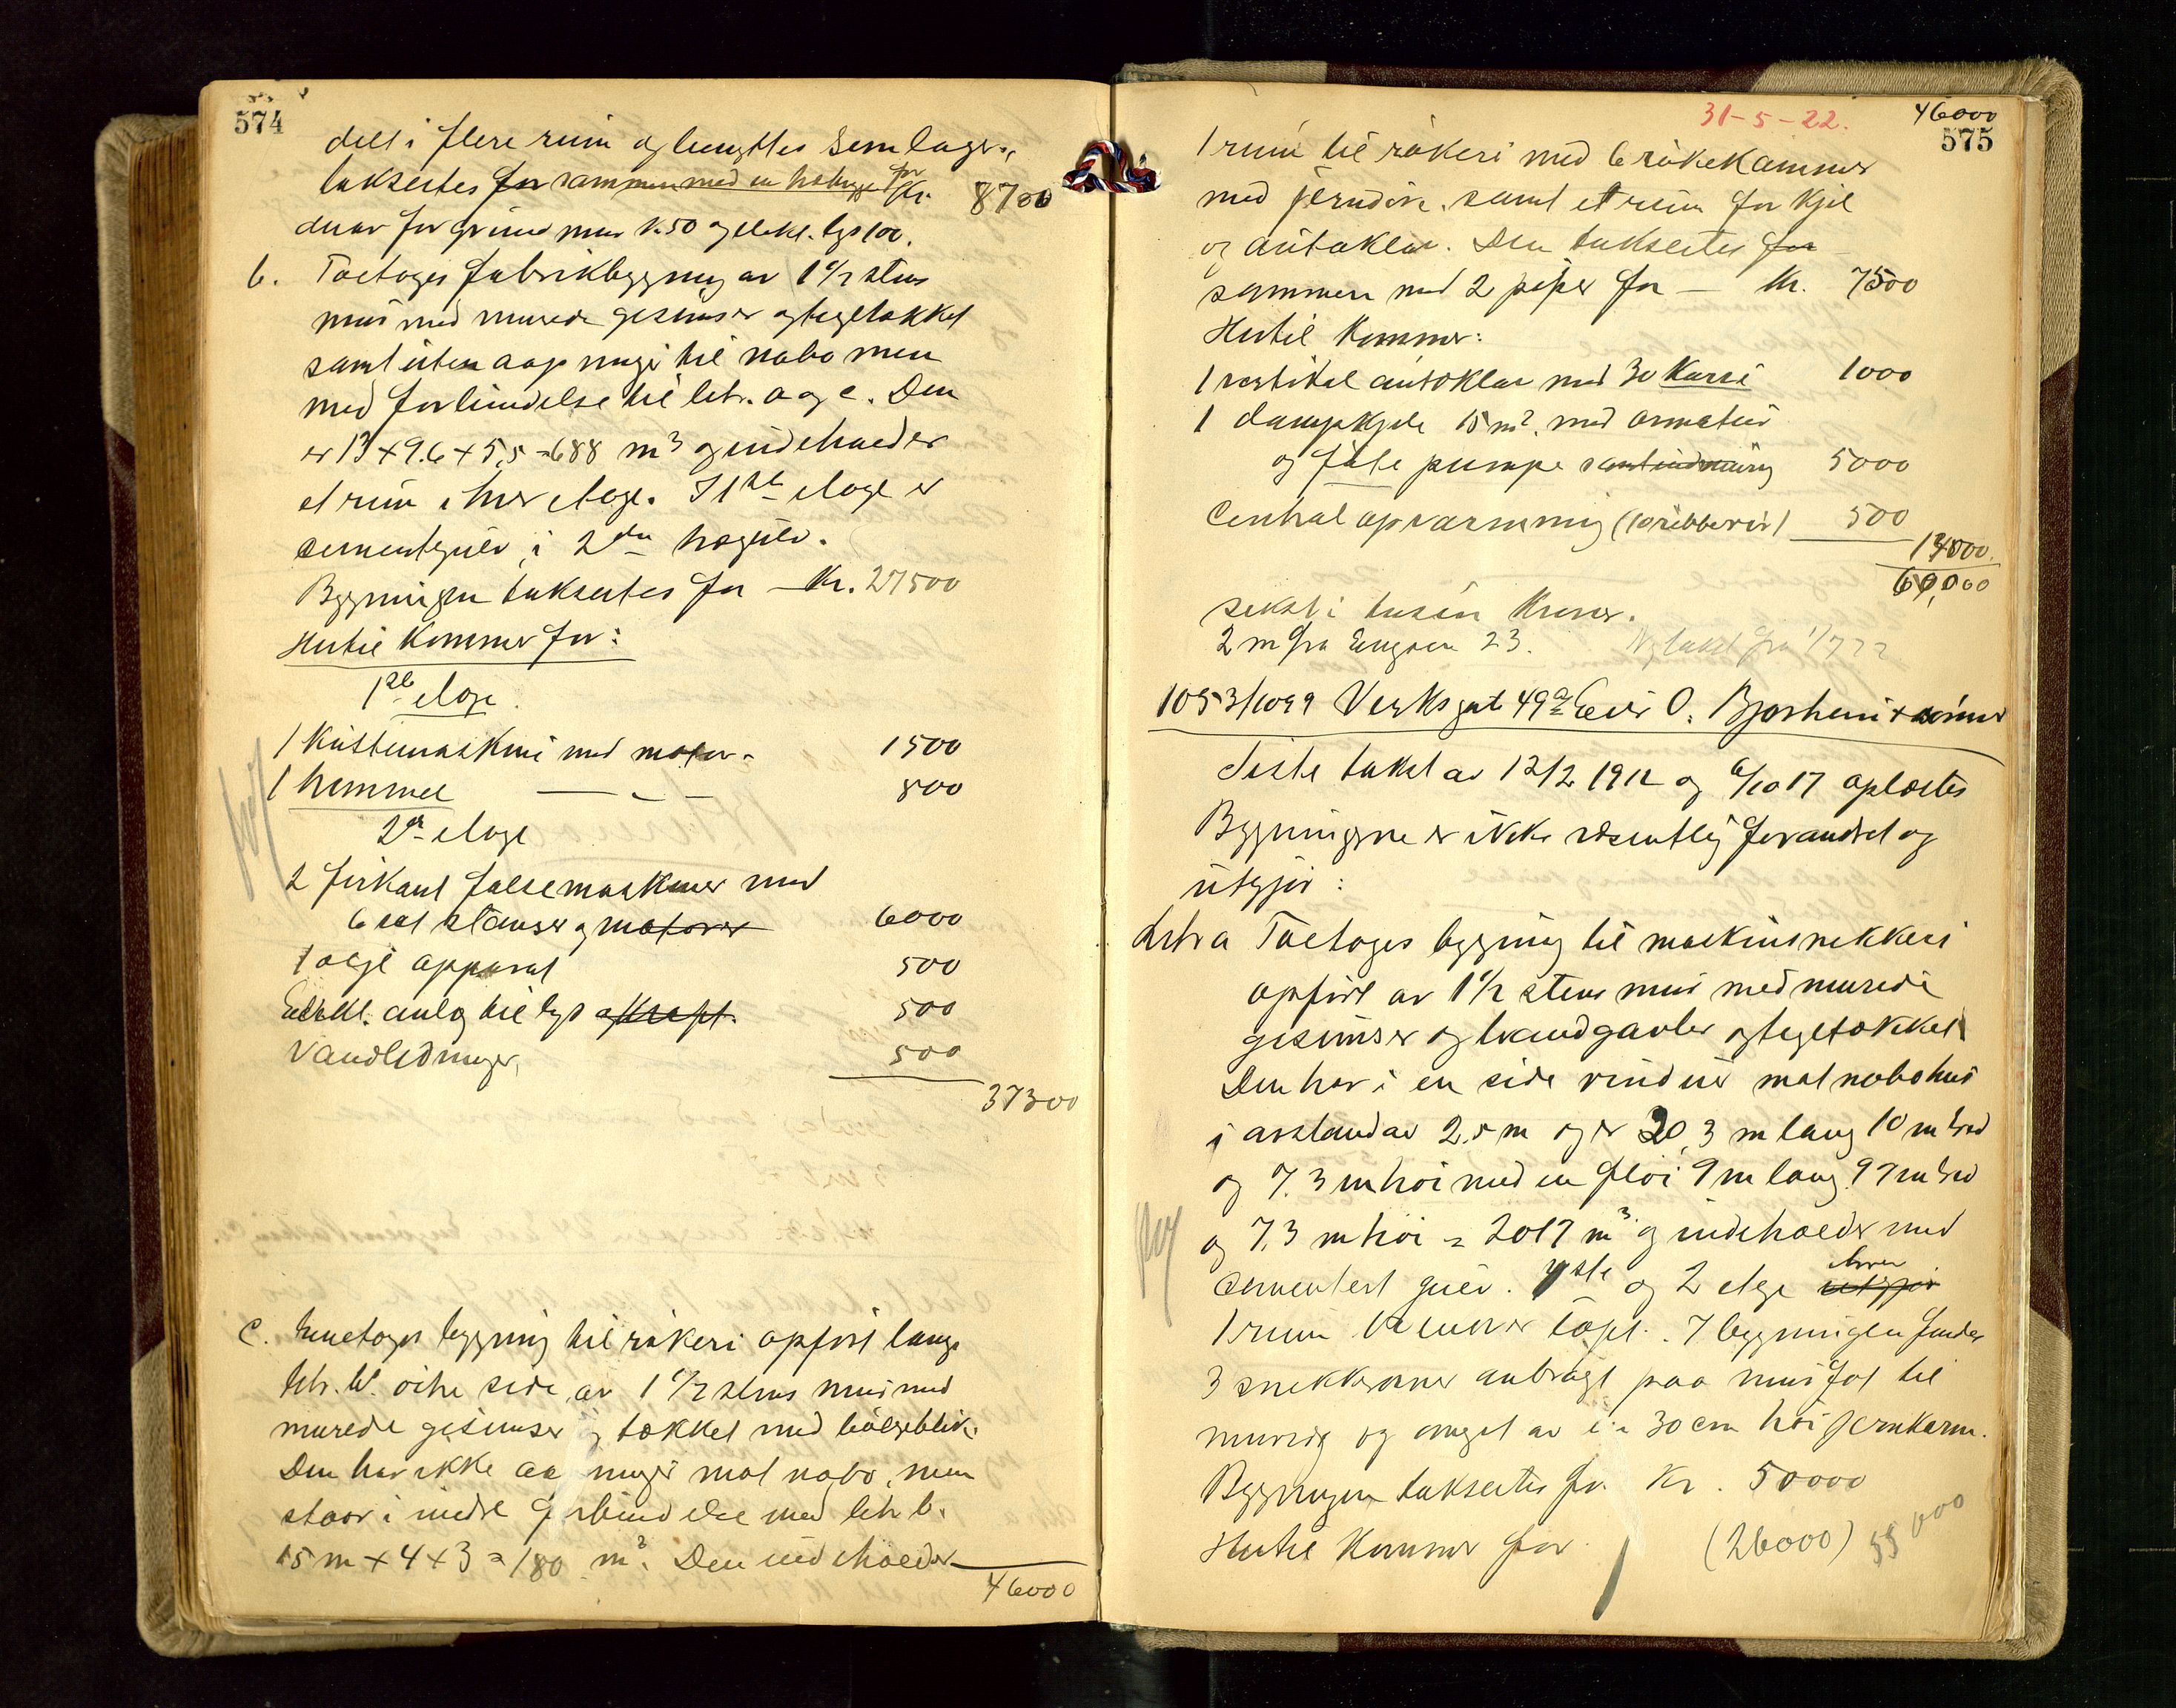 574
delt i flere rum og benyttes som lager,
taksertes for sammen med en for Kr. 8700
derav for grund mur k. 50 og elekt. lys 100.
b. Toetages fabrikbygning av 1 1/2 stens
mur med murede gesimser og tegltækket
samt uten aapninger til nabo men
med forbindelse til letr. a og c. Den
er 13 + 9.6 + 5,5 = 688 m3 og indeholder
et rum i hver etage. I 1ste etage er
cementgulv, i 2den trægulv.
Bygningen taksertes for – Kr. 27500
Hertil kommer for:
1ste etage
1 kistemaskine med motor. 1500
1 himmel — „ — 800
2den etage
2 firkant falsemaskiner med
6 sæt stanser og motorer 6000
1 olje apparat 500
Elektr. anlæg til lys og kraft. 500
Vandledninger, 500
37300
c. Enetages bygning til røkeri opført langs
letr. b. østre side av 1 1/2 stens mur med
murede gesimser og tækket med bølgeblik.
Den har ikke aapninger mot nabo, men
staar i indre forbindelse med letr b.
15 m + 4 + 3 = 180 m3. Den indeholder
46000
31-5-22. 46000
575
1 rum til røkeri med 6 røkekammer
med jerndøre. samt et rum for kjel
og autoklav. Den taksertes for
sammen med 2 piper for — Kr. 7500
Hertil kommer:
1 vertikal autoklav med 30 kurve 1000
1 dampkjele 15 m2. med armatur
og føde pumpe samt indmuring 5000
Central opvarmning (10 ribberør) 500
14000.
60,000
seksti tusen kroner.
2 m fra Engøen 23. Ny takst fra 1/7 22
1053/1099 Verksgat 49a Eier O. Bjorheim + sønner
Siste takst av 12/2 1912 og 6/10 17 oplæstes
Bygningerne er ikke væsentlig forandret og
utgjør:
Litra a Toetages bygning til maskinsnekkeri
opført av 1 1/2 stens mur med murede
gesimser og brandgavler og tegltækket
Den har i en side vinduer mot nabohus
i avstand av 2,5 m og er 20,3 m lang 10 m bred
og 7.3 m høi med en fløi 9 m lang 9 7 m bred
og 7,3 m høi = 2017 m3 og indeholder med
cementert gulv. 1ste og 2 etge hver utgjør
1 rum . I bygningen findes
3 snekkerovner anbragt paa murfot til
murvæg og omgit av en 30 cm høi jernkarm.
Bygningen taksertes for Kr. 50000
Hertil kommer for (26000) 55000